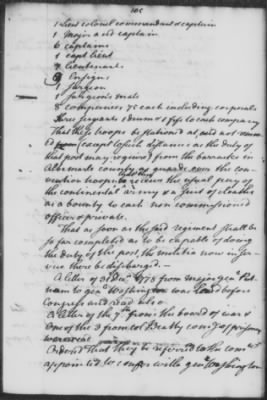 105
1 Lieut colonel commandant & captain
1 Major and captain
6 captains
1 capt lieut
7 lieutenants
9 Ensigns
1 surgeon
1 surgeon's mate
8 companies 75 each including corporals
four serjeants 1 drum & 1 fife to each company
That these troops be stationed at, and not remo
ved from (except to such distance as the duty of
that post may require) from the barracks in
Albemarle county as guards over the con
vention troops receive the usual pay
the continental army & a suit of cloaths
as a bounty to each non commissioned
officer & private.
That as soon as the said regiment shall be
so far compleated as to be capable of doing
the duty of the post, the militia now in ser
vice there be discharged
A letter of 1778 from major gen Put
nam to gen Washington was laid before
Congress and read also
A letter of the 7 from the board of war &
One of the 3 from col Beatty comy of prisoners
were read
Ordered That they be referred to the com
appointed to confer with gen Washington